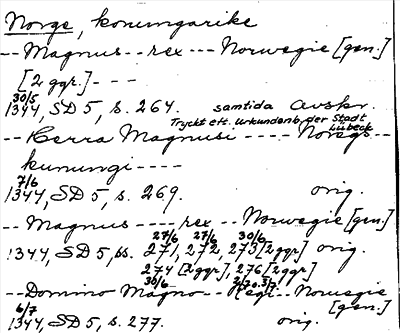 Norge, konungarike
-- Magnus -- rex --- Norwegie [gen.]
[2 ggr.] - - -
30/5
1344, SD 5, s. 264. samtida avskr.
Tryckt eft. Urkundenb. der Stadt Lübeck
-- Herra Magnusi ---- Norigs --
kunungi ----
7/6
1344, SD 5, s. 269. orig.
-- Magnus ---- rex -- Norwegie [gen]
27/6 27/6 30/6
1344, SD 5, ss. 271, 272, 273 [2 ggr] orig.
274 [2 ggr], 276 [2 ggr]
30/6 2/7 o. 3/7.
-- Domino Magno -- Regi -- Norwegie
[gen.]
6/7
1344, SD 5, s. 277. orig.